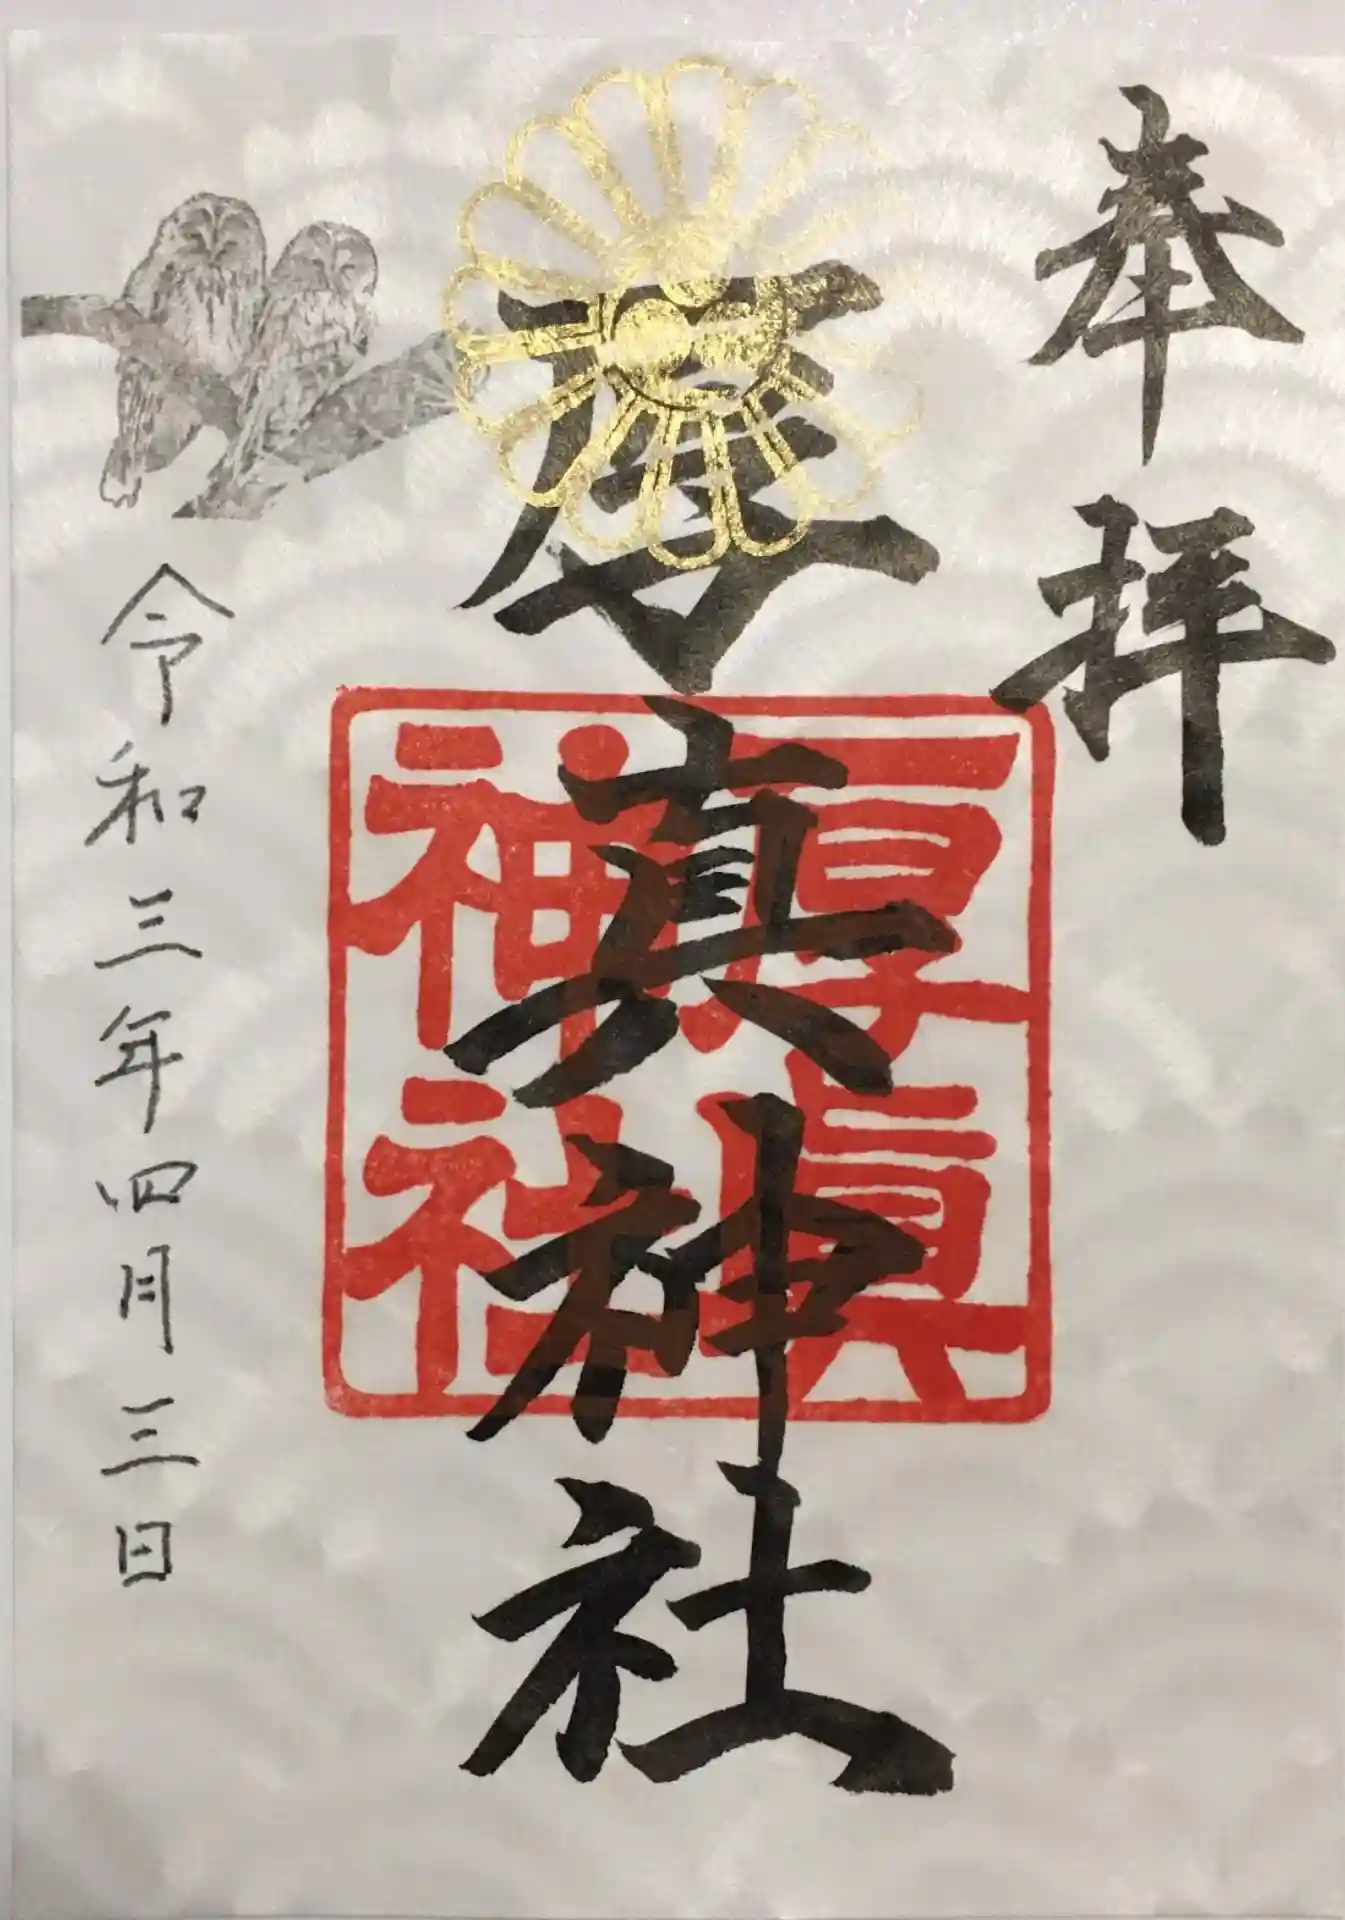 奉拝
厚真神社
厚眞
神社
令和三年四月三日